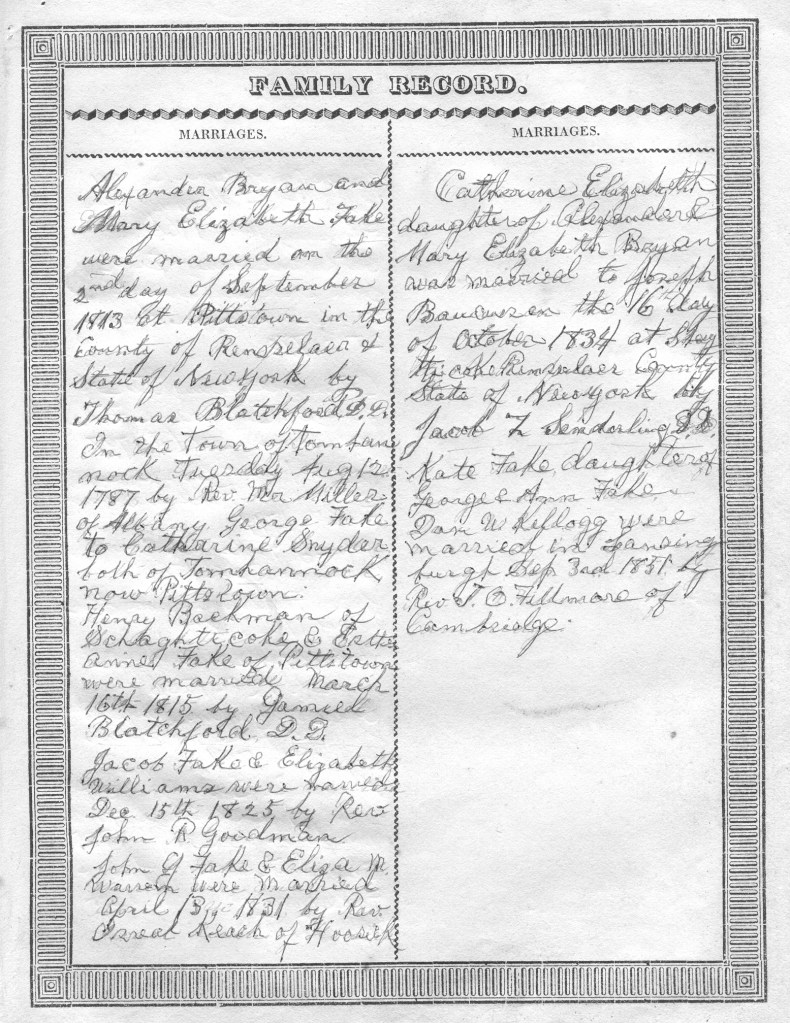 FAMILY RECORD.
MARRIAGES.
Alexander Bryan and
Mary Elizabeth Fake
were married on the
2nd day of September
1813 at Pittstown in the
County of Rensselaer &
State of New York by
Thomas Blatchford D.D.
In the Town of Tomhan
nock Tuesday Aug 12
1787 by Rev. Mr Miller
of Albany George Fake
to Catharine Snyder
both of Tomhannock
now Pittstown.
Henry Beekman of
Schaghticoke & Esther
Anne Fake of Pittstown
were married March
16th 1815 by Samuel
Blatchford D.D.
Jacob Fake & Elizabeth
Williams were married
Dec 15th 1825 by Rev
John R Goodman
John G Fake & Eliza M.
Warren were Married
April 13 1831 by Rev.
of Hoosick
MARRIAGES.
Catherine Elizabeth
daughter of Alexander &
Mary Elizabeth Bryan
was married to Joseph
on the 16th day
of October 1834 at Shag
ticoke Rensselaer County
State of New York by
Jacob
Kate Fake, daughter of
George & Ann Fake
Dan W. Kellogg were
married in Lansing
burgh Sep 3rd 1851 by
Rev. T. O. Fillmore of
Cambridge.